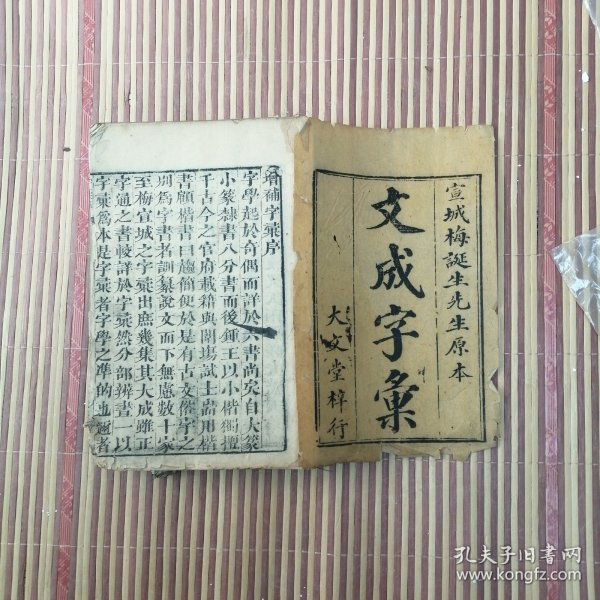 宣城梅誕生先生原本
文成字彙
大文堂梓行
增補字彙序
字學起於奇偶而詳於六書尚矣自大篆
小篆隸書八分書而後鍾王以小楷獨擅
千古今之官府載籍與闈塲試士品用楷
書顧楷書曰趨簡便於是有古文俗字之
別爲字書者訓纂說文而下無慮數十家
至梅宣城之字彙出庶幾集其大成雖正
字通之書較詳於字彙然分部辨書一以
字彙爲本是字彙者字學之準的也廼者
孔夫子旧书网
www.kongfz.com